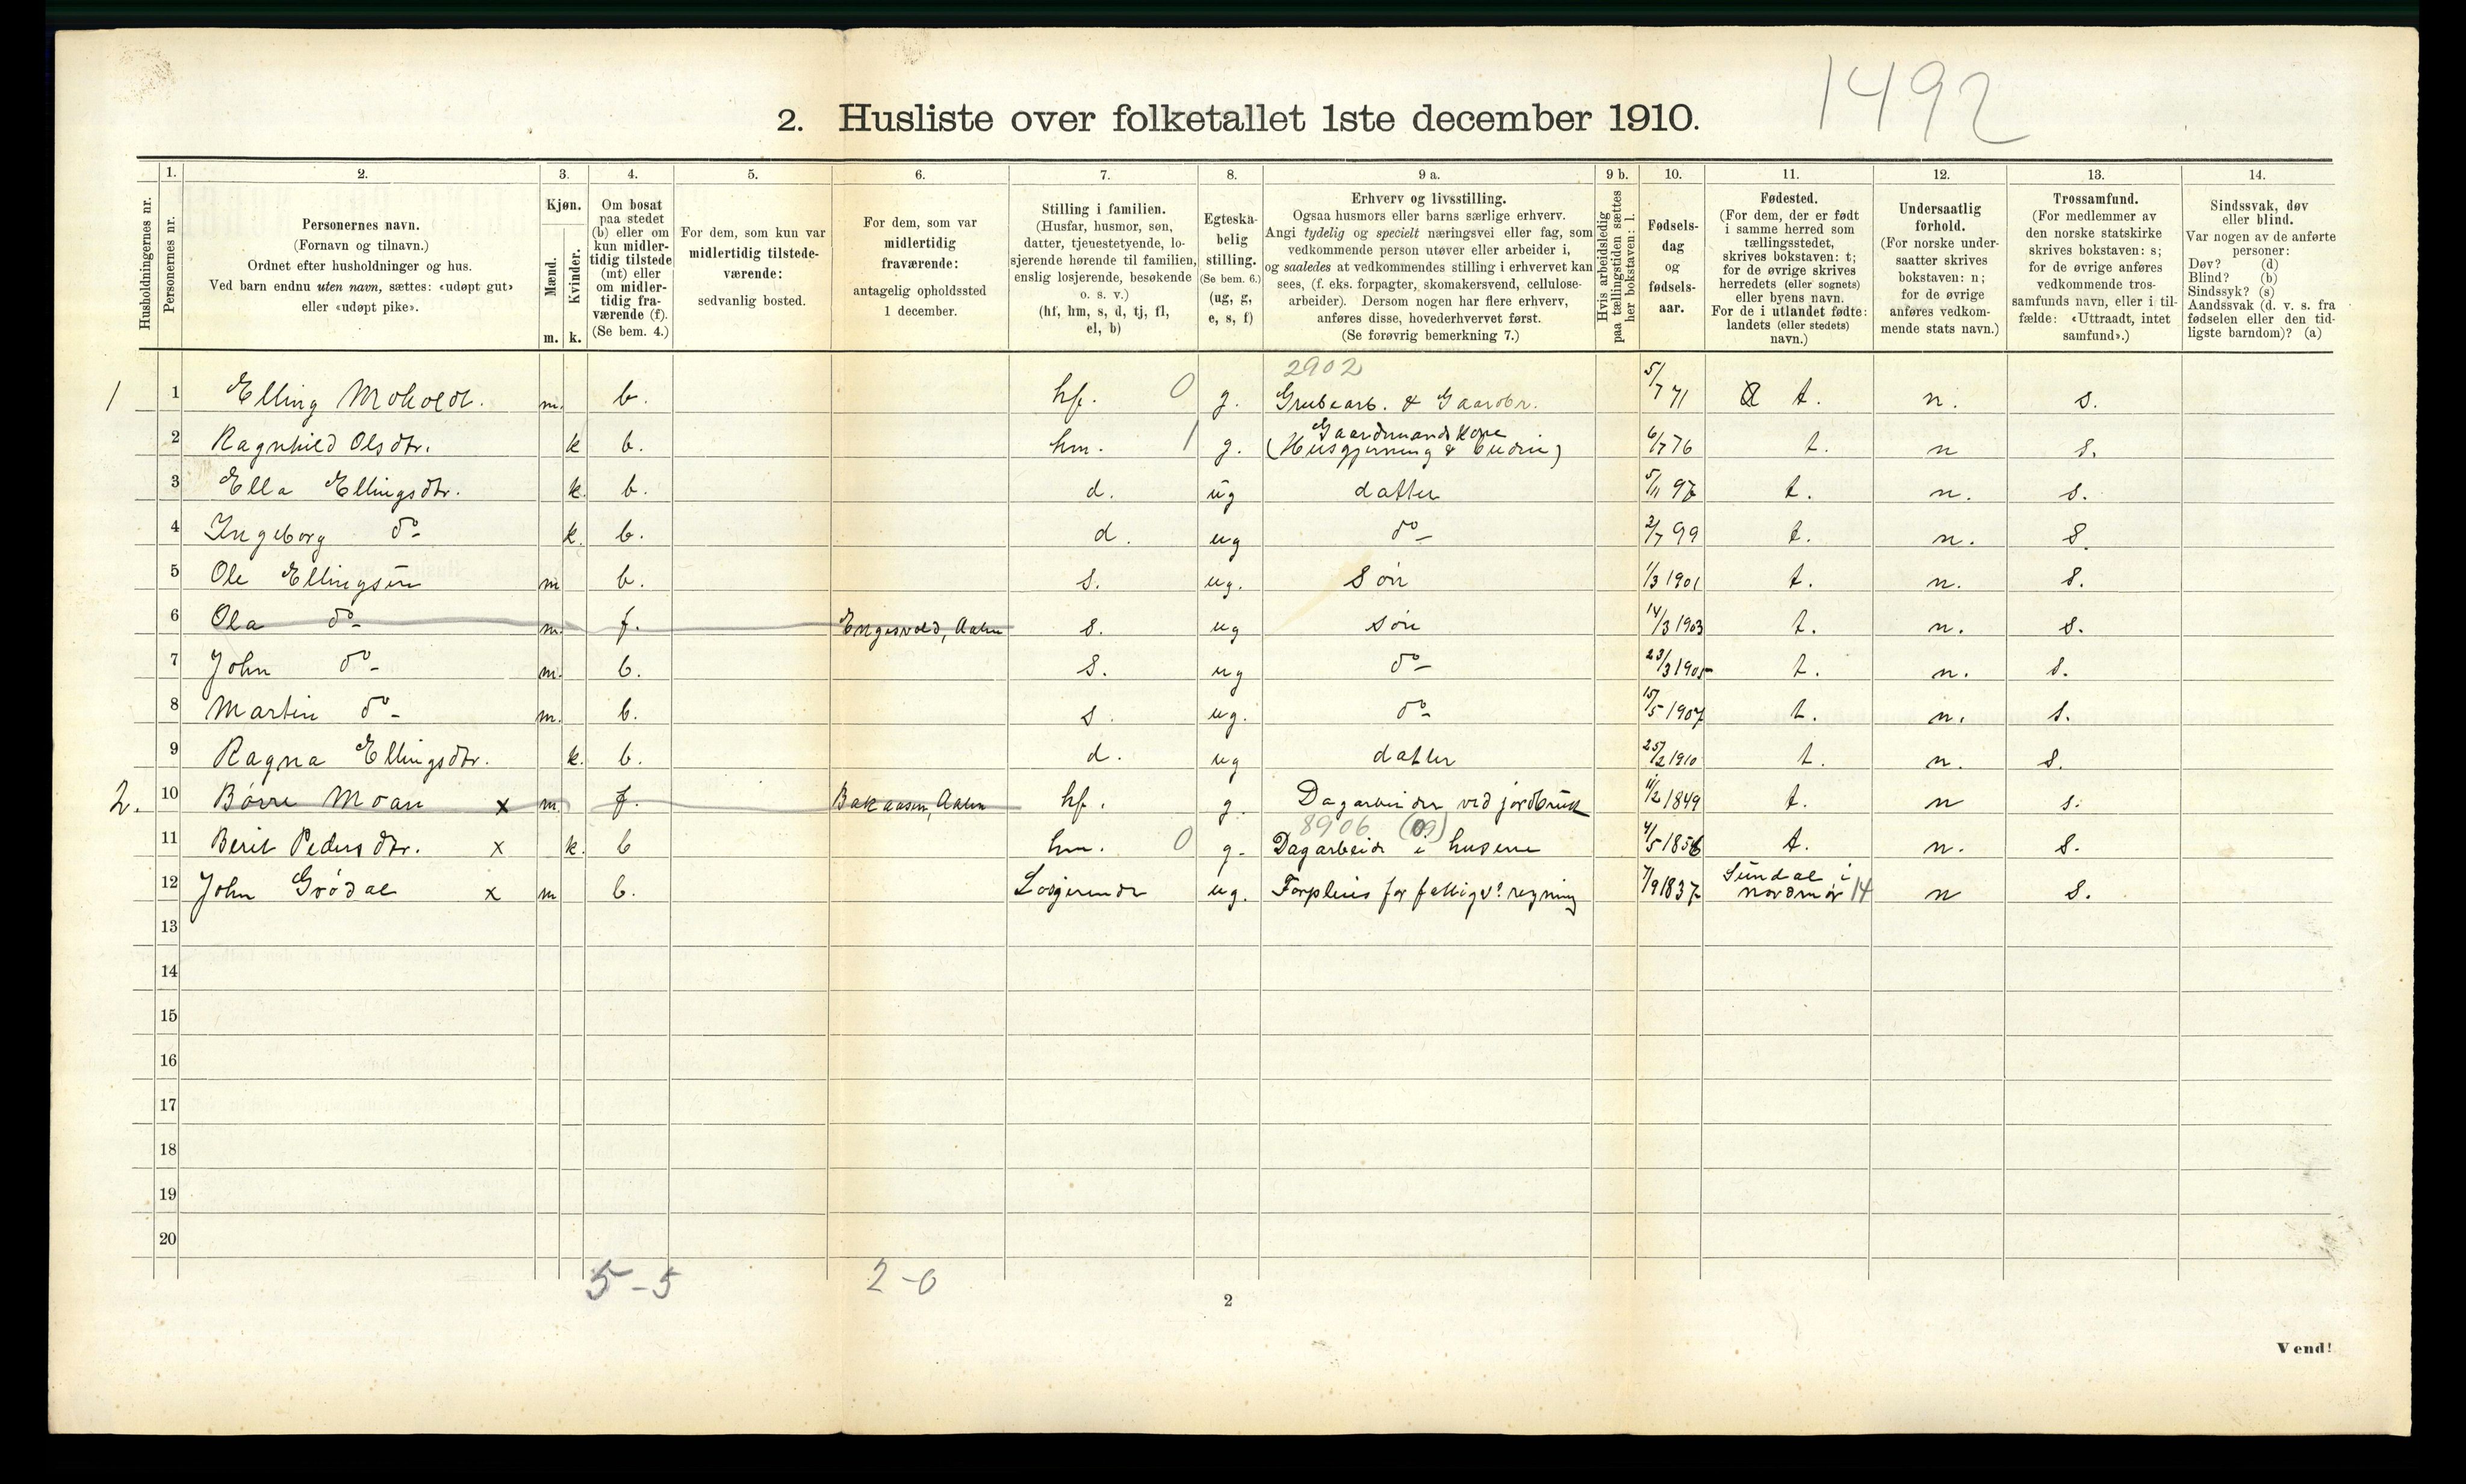 1492
2. Husliste over folketallet 1ste december 1910.
Husholdningernes nr.
1. Personernes nr.
2. Personernes navn. (Fornavn og tilnavn.) Ordnet efter husholdninger og hus. Ved barn endnu uten navn, sættes: «udøpt gut» eller «udøpt pike».
3. Kjøn. Mænd. m. Kvinder. k.
4. Om bosat paa stedet (b) eller om kun midlertidig tilstede (mt) eller om midlertidig fraværende (f). (Se bem. 4.)
5. For dem, som kun var midlertidig tilstedeværende: sedvanlig bosted.
6. For dem, som var midlertidig fraværende: antagelig opholdssted 1 december.
7. Stilling i familien. (Husfar, husmor, søn, datter, tjenestetyende, losjerende hørende til familien, enslig losjerende, besøkende o. s. v.) (hf, hm, s, d, tj, fl, el, b)
8. Egteskabelig stilling. (Se bem. 6.) (ug, g, e, s, f)
9 a. Erhverv og livsstilling. Ogsaa husmors eller barns særlige erhverv. Angi tydelig og specielt næringsvei eller fag, som vedkommende person utøver eller arbeider i, og saaledes at vedkommendes stilling i erhvervet kan sees, (f. eks. forpagter, skomakersvend, cellulosearbeider). Dersom nogen har flere erhverv, anføres disse, hovederhvervet først. (Se forøvrig bemerkning 7.)
9 b. Hvis arbeidsledig paa tællingstiden sættes her bokstaven: l.
10. Fødselsdag og fødselsaar.
11. Fødested. (For dem, der er født i samme herred som tællingsstedet, skrives bokstaven: t; for de øvrige skrives herredets (eller sognets) eller byens navn. For de i utlandet fødte: landets (eller stedets) navn.)
12. Undersaatlig forhold. (For norske undersaatter skrives bokstaven: n; for de øvrige anføres vedkommende stats navn.)
13. Trossamfund. (For medlemmer av den norske statskirke skrives bokstaven: s; for de øvrige anføres vedkommende trossamfunds navn, eller i tilfælde: «Uttraadt, intet samfund».)
14. Sindssvak, døv eller blind. Var nogen av de anførte personer: Døv? (d) Blind? (b) Sindssyk? (s) Aandssvak (d. v. s. fra fødselen eller den tidligste barndom)? (a)
2902
1 1 Elling Moholdt. m. b. hf. 0 g. Grubearb. & Gaardbr. 5/7 71 t. n. s.
2 Ragnhild Olsdtr. k b. hm. 1 g. Gaardmandskone (Husgjerning & ) 6/7 76 t. n s.
3 Ella Ellingsdtr. k. b. d. ug datter 5/11 97 t. n. s.
4 Ingeborg do k. b. d. ug do 2/7 99 t. n. s.
5 Ole Ellingsen m b. s. ug. Søn 1/3 1901 t. n. s.
6 Ola do m. f. Engesvold, Aalen s. ug søn 14/3 1903 t. n. s.
7 John do m. b. s. ug do 23/3 1905 t. n. s.
8 Martin do m. b. s. ug. do 15/5 1907 t. n. s.
9 Ragna Ellingsdtr. k. b. d. ug datter 25/2 1910 t. n. s.
2. 10 Børre Moan x m f. Bakaasen, Aalen hf. g. Dagarbeider ved jordbruk 11/2 1849 t. n s.
8906 (09)
11 Berit Pedersdtr. x k. b hm. 0 g. Dagarbeide i husene 4/5 1856 t. n. s.
12 John Grødal x m b. Losjerende ug. Forpleies for fattigv. regning 7/9 1837 Sundal i Nordmør 14 n s.
13
14
15
16
17
18
19
20
5 - 5 2 - 0
2
Vend!